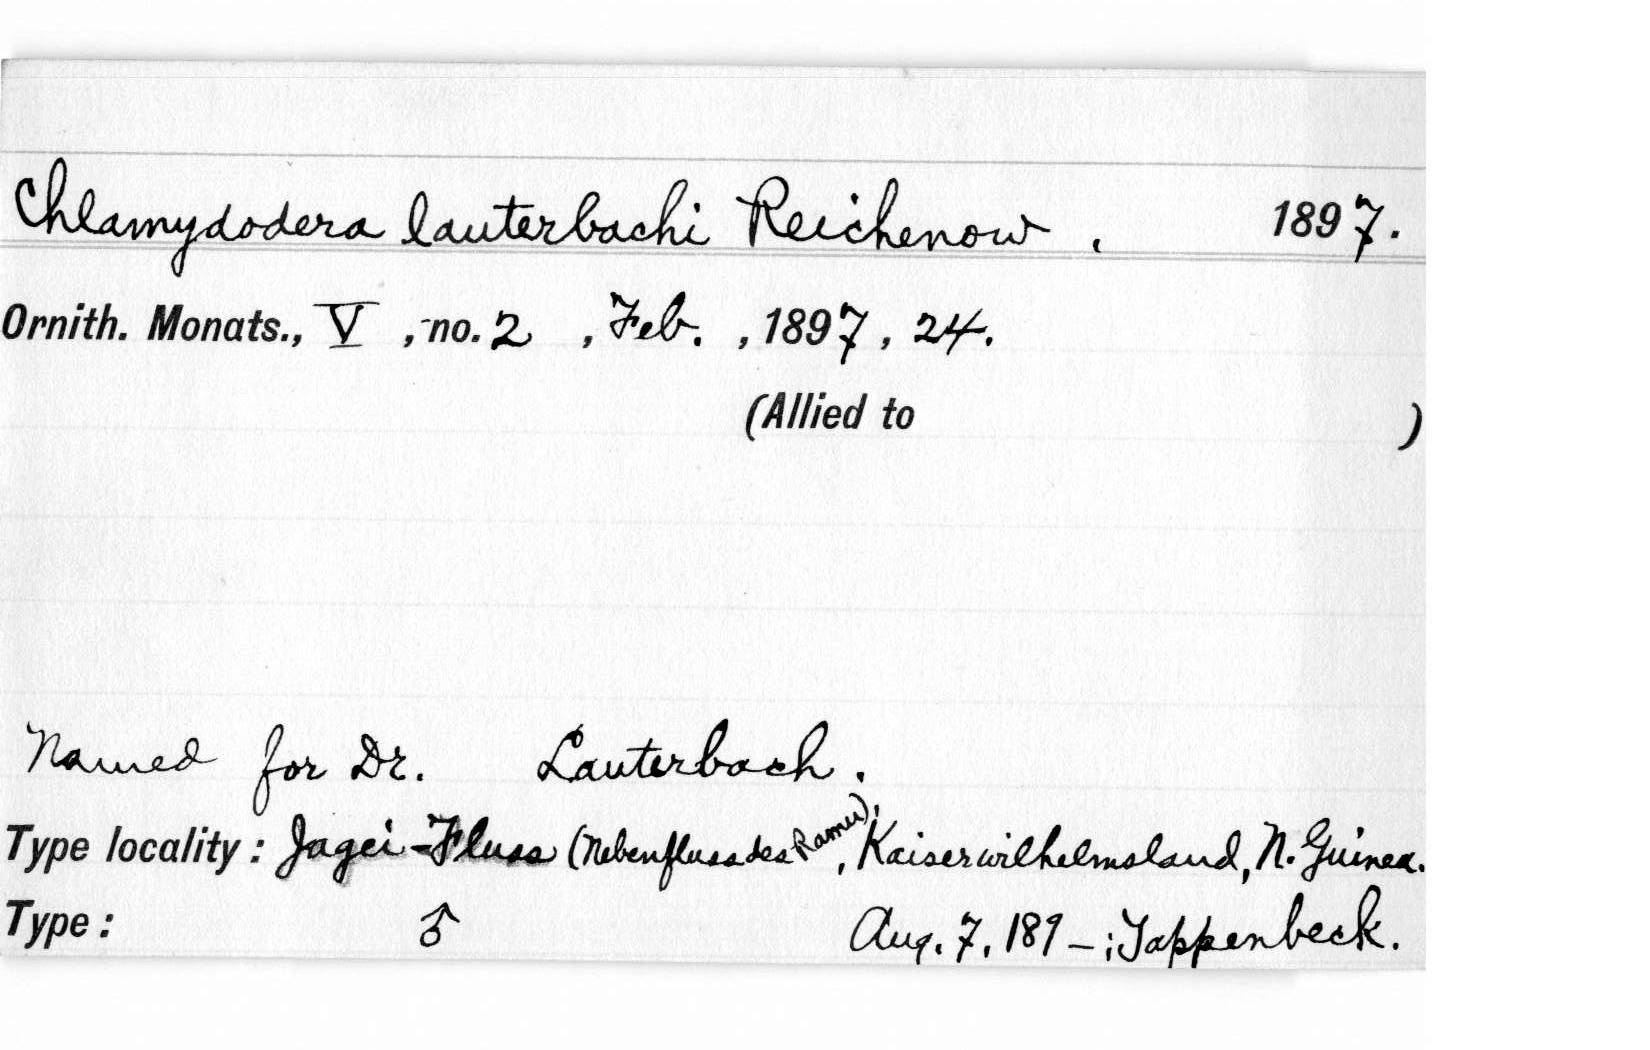 Chlamydodera lauterbachi Reichenow. 1897.
Ornith. Monats., V, no. 2, Feb., 1897, 24.
(Allied to )
Named for Dr. Lauterbach.
Type locality: Jagei-Fluss (Nebenfluss des Ramu), Kaiserwilhelmsland, N. Guinea.
Type: ♂ Aug. 7, 189–; Tappenbeck.